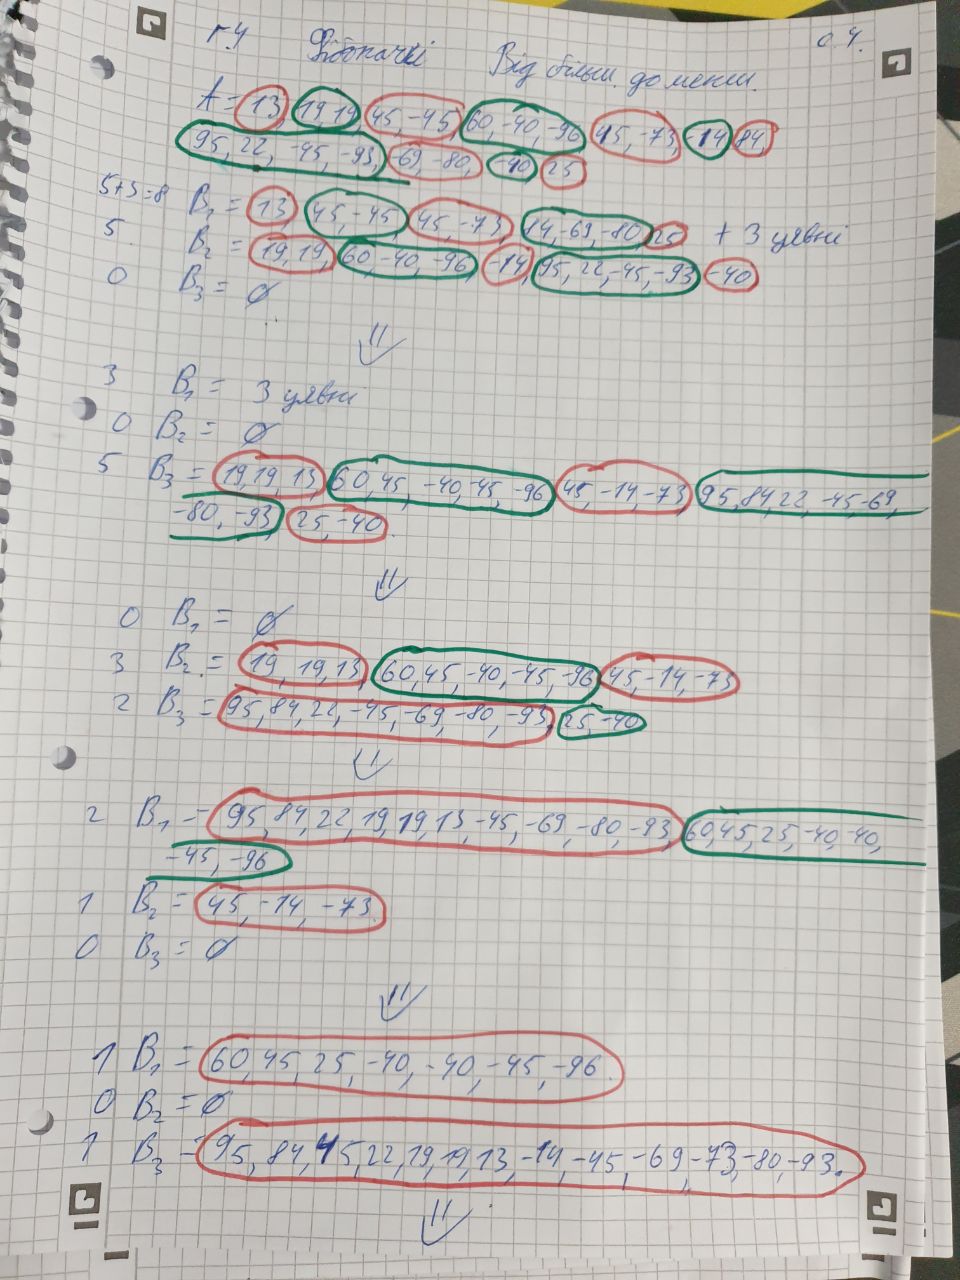 г.4 Фібоначкі Від більш. до менш. с.4.
A = 13, 19, 19, 45, -45, 60, -40, -96, 45, -73, -14, 84,
95, 22, -45, -93, -69, -80, -40, 25
5+3=8 B₁ = 13, 45, -45, 45, -73, 14, -69, -80, 25 + 3 уявні
5. B₂ = 19, 19, 60, -40, -96, -14, 95, 22, -45, -93, -40
0 B₃ = ∅
⇓
3 B₁ = 3 уявні
0 B₂ = ∅
5 B₃ = 19, 19, 13, 60, 45, -40, -45, -96, 45, -14, -73, 95, 84, 22, -45, -69,
-80, -93, 25, -40.
⇓
0 B₁ = ∅
3 B₂ = 19, 19, 13, 60, 45, -40, -45, -96, 45, -14, -73
2 B₃ = 95, 84, 22, -45, -69, -80, -93, 25, -40
⇓
2 B₁ = 95, 84, 22, 19, 19, 13, -45, -69, -80, -93, 60, 45, 25, -40, -40,
-45, -96
1 B₂ = 45, -14, -73.
0 B₃ = ∅
⇓
1 B₁ = 60, 45, 25, -40, -40, -45, -96.
0 B₂ = ∅
1 B₃ = 95, 84, 45, 22, 19, 19, 13, -14, -45, -69, -73, -80, -93.
⇓